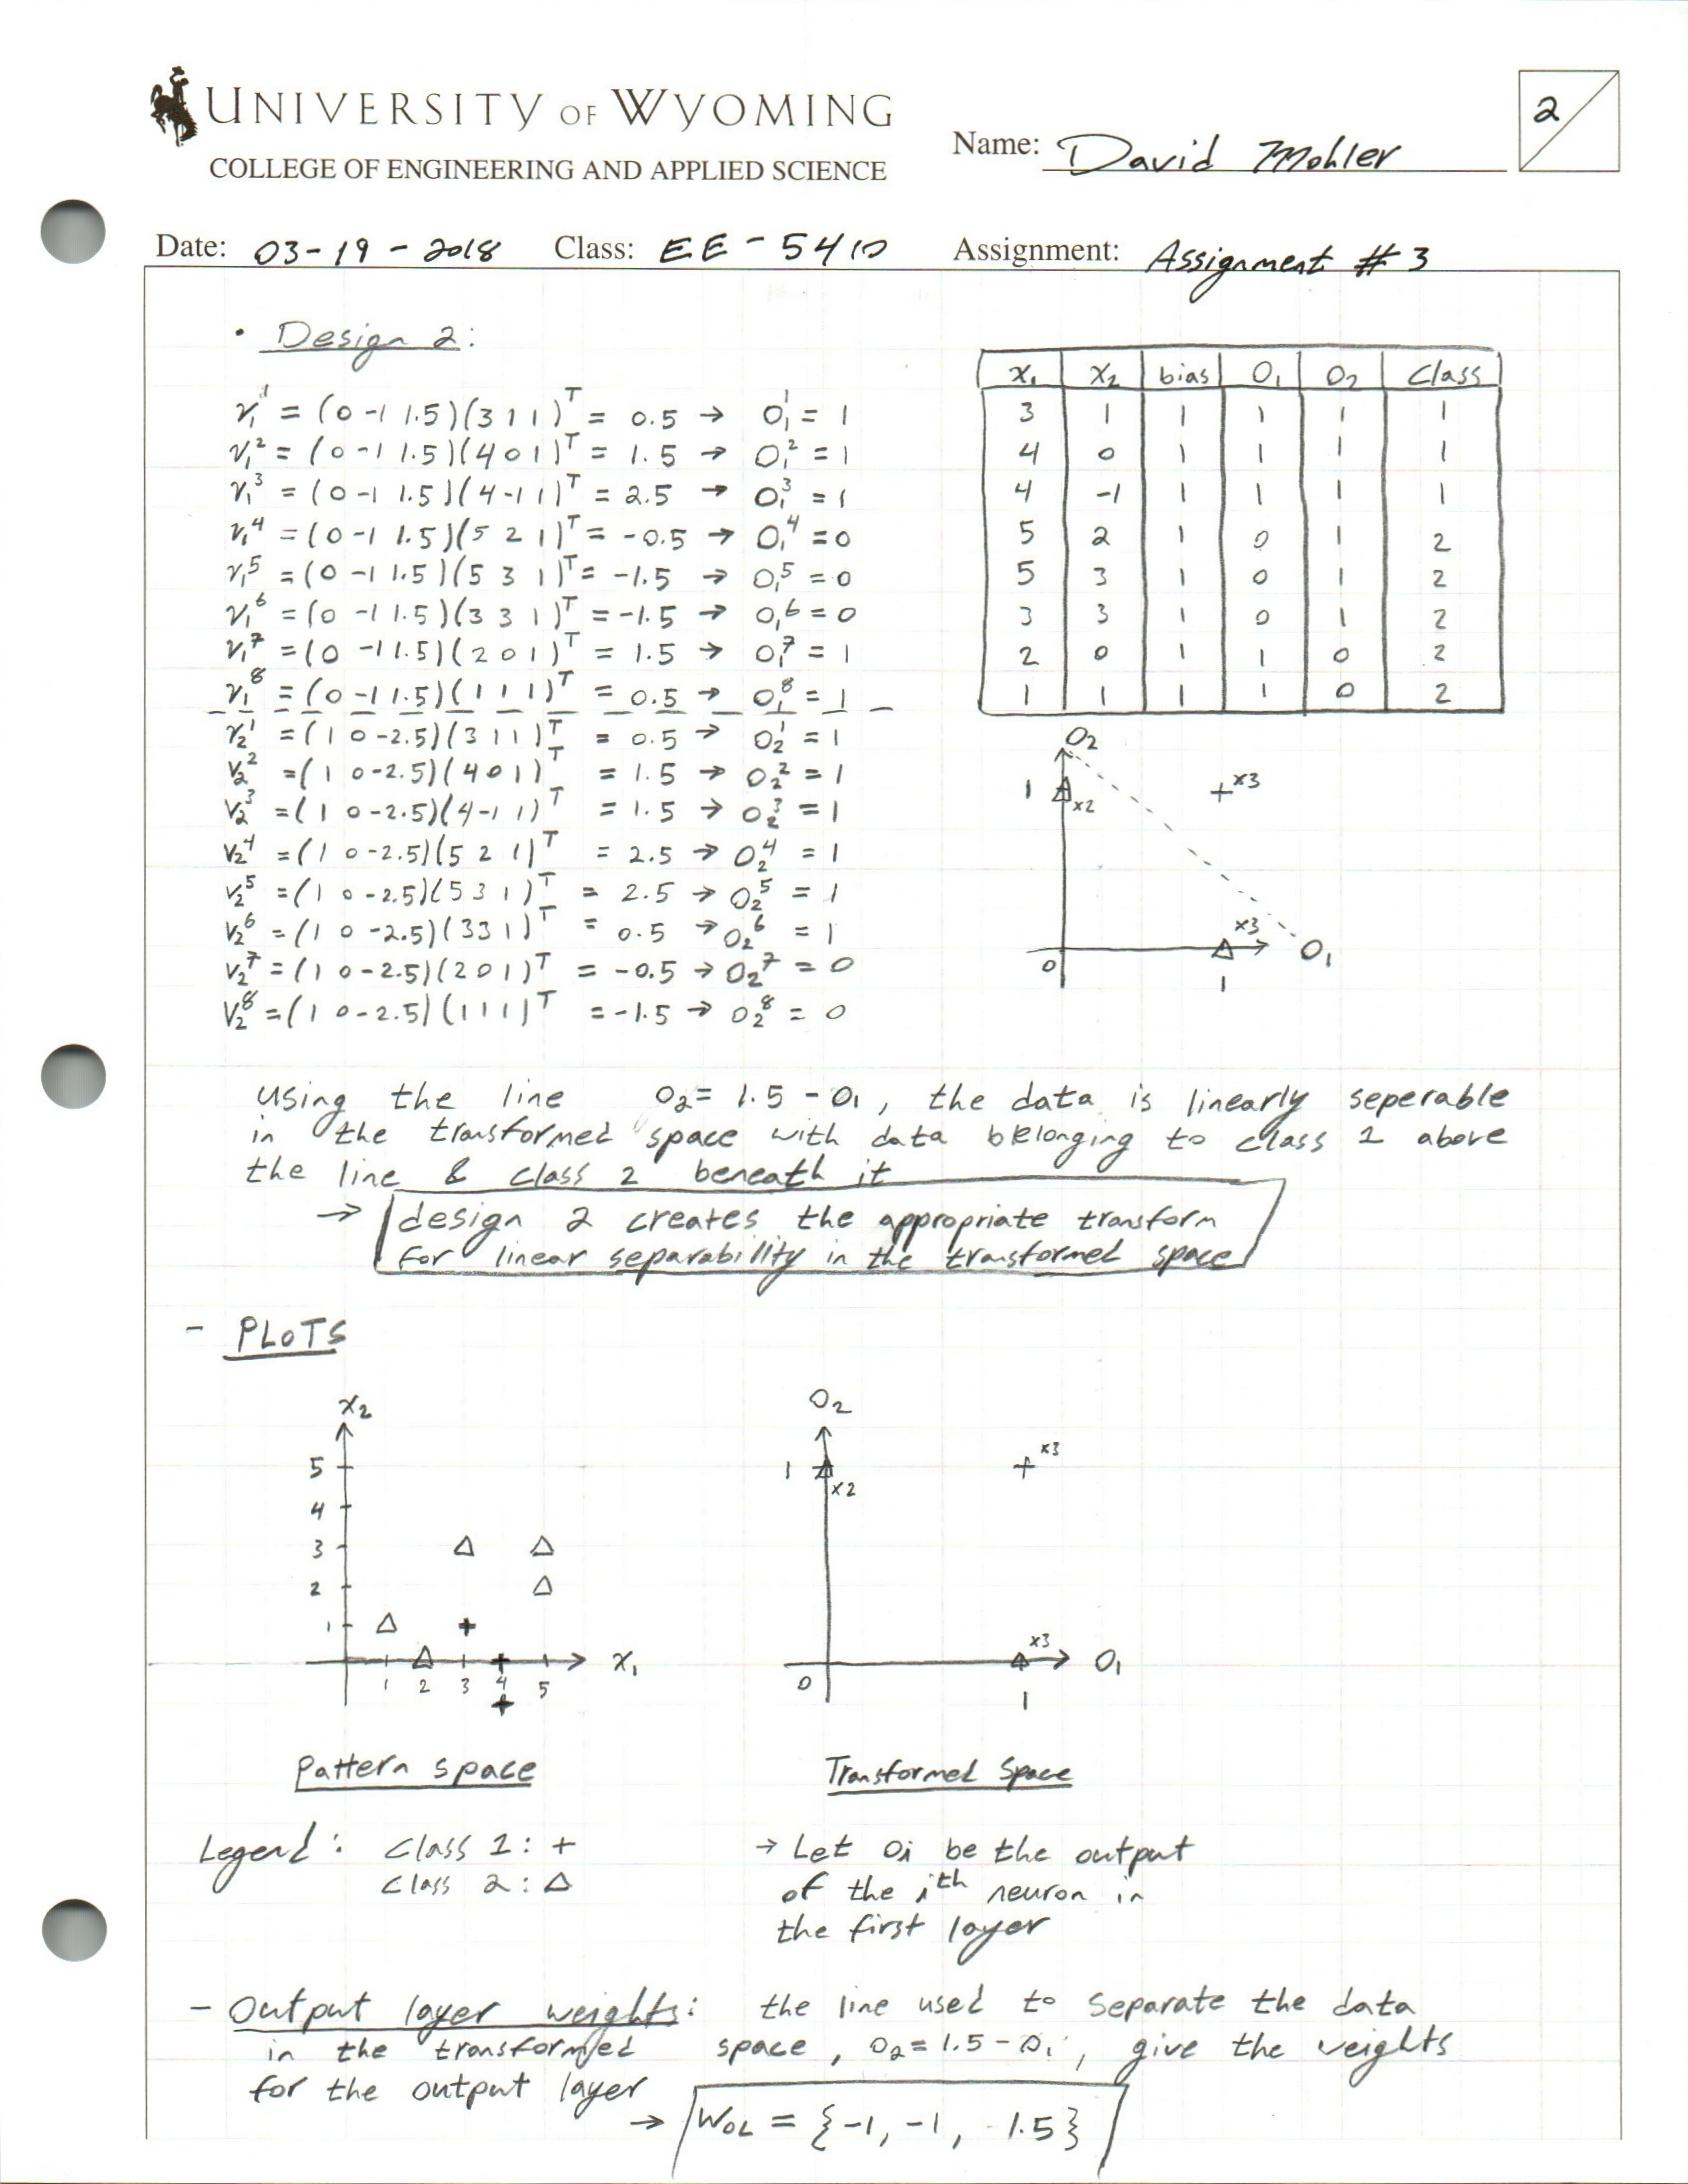 UNIVERSITY OF WYOMING
COLLEGE OF ENGINEERING AND APPLIED SCIENCE
Name: David Mohler
2
Date: 03-19-2018 Class: EE-5410 Assignment: Assignment #3
• Design 2:
v₁¹ = (0 -1 1.5)(3 1 1)ᵀ = 0.5 → O₁¹ = 1
v₁² = (0 -1 1.5)(4 0 1)ᵀ = 1.5 → O₁² = 1
v₁³ = (0 -1 1.5)(4 -1 1)ᵀ = 2.5 → O₁³ = 1
v₁⁴ = (0 -1 1.5)(5 2 1)ᵀ = -0.5 → O₁⁴ = 0
v₁⁵ = (0 -1 1.5)(5 3 1)ᵀ = -1.5 → O₁⁵ = 0
v₁⁶ = (0 -1 1.5)(3 3 1)ᵀ = -1.5 → O₁⁶ = 0
v₁⁷ = (0 -1 1.5)(2 0 1)ᵀ = 1.5 → O₁⁷ = 1
v₁⁸ = (0 -1 1.5)(1 1 1)ᵀ = 0.5 → O₁⁸ = 1
v₂¹ = (1 0 -2.5)(3 1 1)ᵀ = 0.5 → O₂¹ = 1
v₂² = (1 0 -2.5)(4 0 1)ᵀ = 1.5 → O₂² = 1
v₂³ = (1 0 -2.5)(4 -1 1)ᵀ = 1.5 → O₂³ = 1
v₂⁴ = (1 0 -2.5)(5 2 1)ᵀ = 2.5 → O₂⁴ = 1
v₂⁵ = (1 0 -2.5)(5 3 1)ᵀ = 2.5 → O₂⁵ = 1
v₂⁶ = (1 0 -2.5)(3 3 1)ᵀ = 0.5 → O₂⁶ = 1
v₂⁷ = (1 0 -2.5)(2 0 1)ᵀ = -0.5 → O₂⁷ = 0
v₂⁸ = (1 0 -2.5)(1 1 1)ᵀ = -1.5 → O₂⁸ = 0
x₁ x₂ bias O₁ O₂ Class
3 1 1 1 1 1
4 0 1 1 1 1
4 -1 1 1 1 1
5 2 1 0 1 2
5 3 1 0 1 2
3 3 1 0 1 2
2 0 1 1 0 2
1 1 1 1 0 2
O₂
1 x2 +x3
x3
0 O₁
1
using the line O₂ = 1.5 - O₁, the data is linearly seperable
in the transformed space with data belonging to class 1 above
the line & class 2 beneath it
→ design 2 creates the appropriate transform
for linear separability in the transformed space
- PLOTS
x₂
5
4
3
2
1
x₁
1 2 3 4 5
Pattern space
O₂
1 x2 + x3
x3
0 O₁
1
Transformed Space
Legend: Class 1: +
Class 2: △
→ Let Oi be the output
of the iᵗʰ neuron in
the first layer
- Output layer weights: the line used to separate the data
in the transformed space, O₂ = 1.5 - O₁, give the weights
for the output layer
→ W_OL = {-1, -1, -1.5}